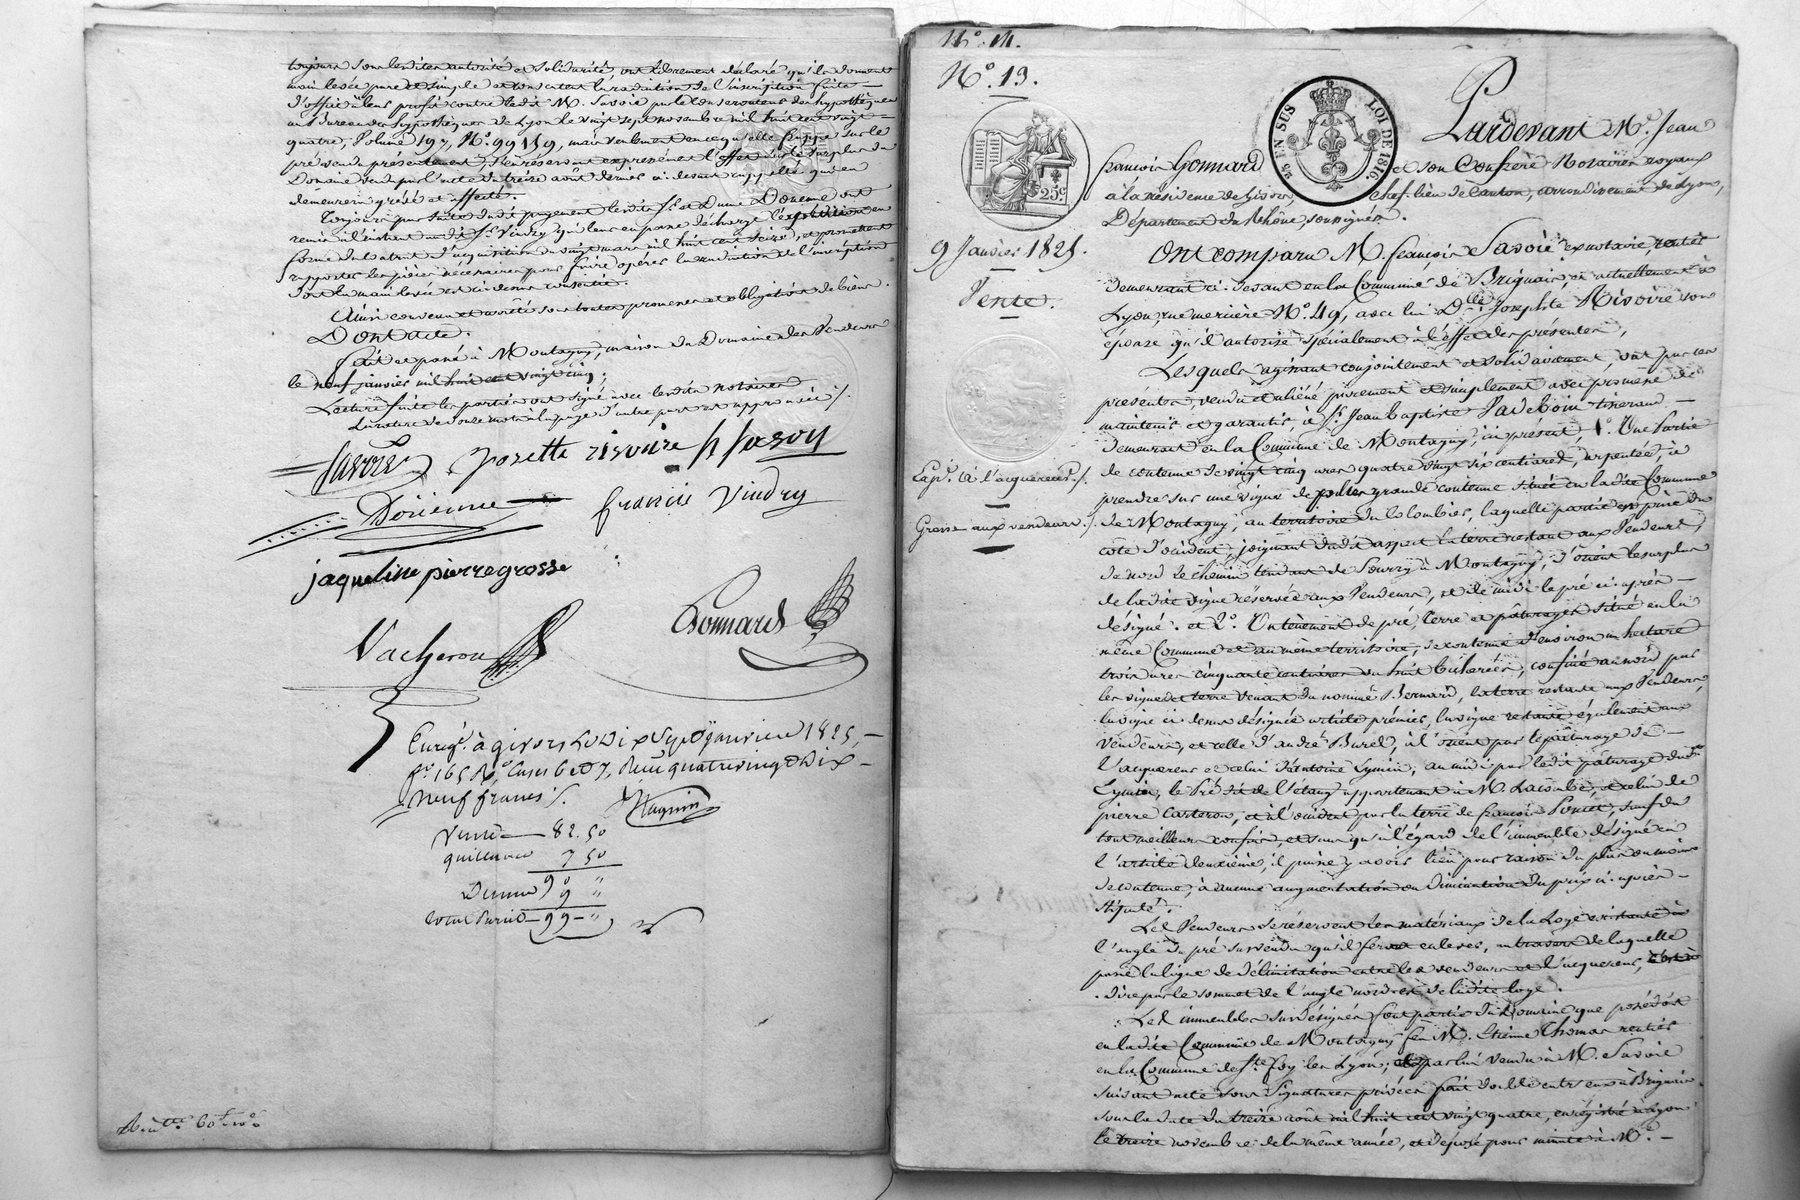 toujours sous lesdites autorité et solidarité, ont librement déclaré qu'ils donnent
main levée pure et simple et consentent la radiation de l'inscription faite
d'office à leur profit contre ledit M. Savoie par le Conservateur des hypothèques
au Bureau des hypothèques de Lyon le vingt sept novembre mil huit cent vingt
quatre, Volume 197, N.º 99 159, mais seulement en ce qu'elle frappe sur le
pré vendu présentement, s'en réservant expressément l'effet sur le surplus du
Domaine vendu par l'acte du treize août dernier ci-dessus rappelé qui en
demeurera grévé et affecté.
Toujours par suite dudit payement lesdits S.r et Dame Dorienne ont
remis à l'instant audit S.r Vindry qui leur en passe décharge l'expédition en
forme du Contrat d'acquisition du vingt mars mil huit cent seize, et promettent
rapporter les pièces nécessaires pour faire opérer la radiation de l'inscription
dont la main levée est ci-dessus consentie.
Ainsi convenu et arrêté sous toutes promesses et obligations de biens.
Dont acte.
Fait et passé à Montagny, maison du Domaine des Vendeurs
le neuf janvier mil huit cent vingt cinq;
Lecture faite les parties ont signé avec lesdits notaires
La rature de douze mots à la page d'autre part est approuvée ./.
Savoie Josette rivoire
Dorienne francis Vindry
jaqueline pierregrosse
Vacheron Gonnard
Enreg.é à givors le Dix sept janvier 1825,
f.º 165 R.º Cases 6 et 7, Reçu quatrevingt Dix
neuf francs ./.
Vente — 82. 50
quittance 7 50
90 "
Dixme 9 "
total Perçu — 99 - "
N.º 14.
N.º 13.
25 EN SUS LOI DE 1816.
25 c.
Pardevant M.e Jean
François Gonnard et son Confrère Notaires royaux
à la résidence de Givors, chef-lieu de Canton, arrondissement de Lyon,
Département du Rhône, soussignés.
9 Janvier 1825.
Vente.
Ont comparu M. François Savoie ex notaire, rentier
demeurant ci-devant en la Commune de Brignais, et actuellement à
Lyon, rue merciere N.º 49, avec lui D.lle Josephte Rivoire son
épouse qu'il autorise spécialement à l'effet des présentes,
Lesquels agissant conjointement et solidairement, ont par ces
présentes, vendu et aliéné purement et simplement avec promesse de
maintenir et garantir, à S.r Jean Baptiste Padeboin tisserand,
demeurant en la Commune de Montagny, ici présent, 1.º Une Partie
de contenue de vingt cinq ares quatre vingt six centiares, arpentée, à
Exp.n à l'acquéreur ./.
prendre sur une vigne de plus grande contenue située en ladite Commune
Grosse aux vendeurs ./.
de Montagny, au territoire du Colombier, laquelle partie est prise du
côté d'occident, joignant dudit aspect la terre restant aux Vendeurs,
de nord le chemin tendant de Sourzy à Montagny, d'orient le surplus
de ladite vigne réservée aux Vendeurs, et de midi le pré ci-après
désigné. et 2.º Un tènement de pré, terre et pâturages situé en la
même Commune et au même territoire, de contenue d'environ un hectare
trois ares cinquante centiares ou huit bicherées, confiné au nord par
les vigne et terre venant du nommé Bernard, la terre restante aux Vendeurs,
la vigne ci-dessus désignée article premier, la vigne restant également aux
vendeurs, et celle d'André Burel, à l'orient par le pâturage de
l'acquéreur et celui d'Antoine Eymin, au midi par ledit pâturage dudit
Eymin, le Pré dit de l'étang appartenant à M. Lacombe, et celui de
pierre Casteron, et à l'occident par la terre de François Poncet, sauf du
tout meilleurs confins, et sans qu'à l'égard de l'immeuble désigné en
l'article deuxième, il puisse y avoir lieu pour raison du plus ou moins
de contenue, à aucune augmentation ou diminution du prix ci-après
stipulé.
Les Vendeurs se réservent les matériaux de la Loge existante à
l'angle du pré sus vendu qu'ils feront enlever, au travers de laquelle
passe la ligne de délimitation entre les vendeurs et l'acquéreur, c'est à
dire par le sommet de l'angle nord-est de ladite loge.
Les immeubles sus désignés font partie du Domaine que possédait
en ladite Commune de Montagny feu M. Etienne Thomas rentier
en la Commune de S.te Foy les Lyon, et par lui vendu à M. Savoie
suivant acte sous Signatures privées fait double entre eux à Brignais
sous la date du treize août mil huit cent vingt quatre, enrégistré à Lyon
le treize novembre de la même année, et déposé pour minute à M.e